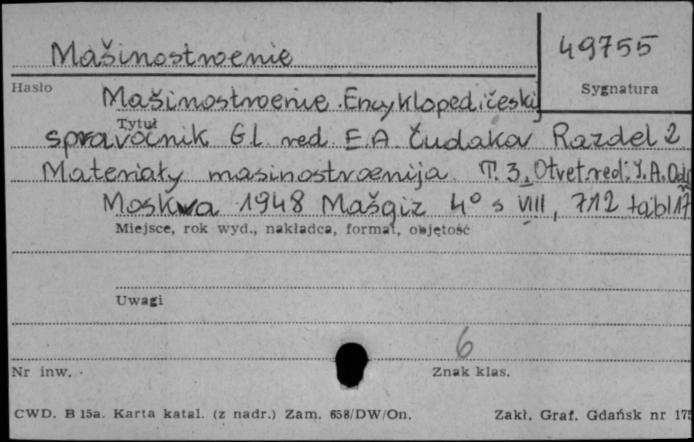 Mašinostroenie
49755
Hasło
Sygnatura
Mašinostroenie. Encyklopedičeskij
Tytuł
spravočnik Gl. red. E.A. Čudakov Razdel 2
Materiały masinostroenija. T. 3. Otvet.red.: I. A. Odi
Moskwa 1948 Mašgiz 4° s VIII, 712 tabl 17
Miejsce, rok wyd., nakładca, format, objętość
Uwagi
6
Nr inw. Znak klas.
CWD. B 15a. Karta katal. (z nadr.) Zam. 658/DW/On. Zakł. Graf. Gdańsk nr 175